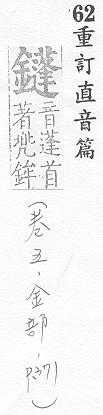 62 重訂直音篇
鑝 音蓬首
著兜鉾
(卷五、金部,P371)